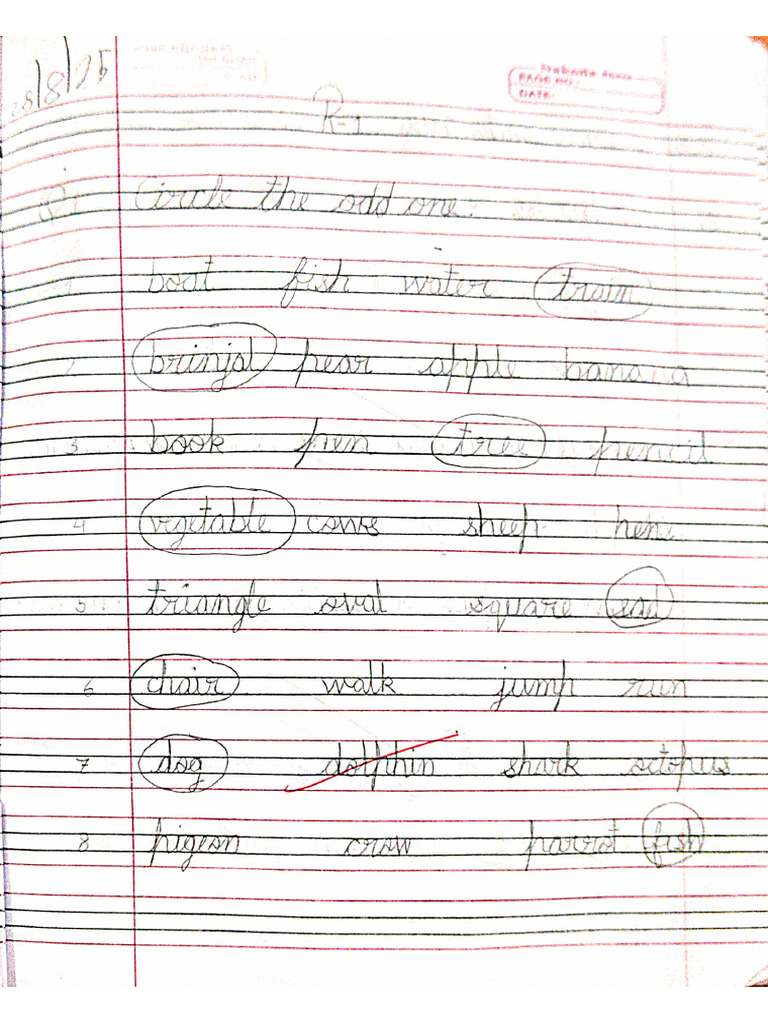 28/8/25
PAGE NO.:
DATE:
R-1
Q1 Circle the odd one:
1 boat fish water train
2 brinjal pear apple banana
3 book pen tree pencil
4 vegetable cows sheep hen
5 triangle oval square sad
6 chair walk jump run
7 dog dolphin shark octopus
8 pigeon crow parrot fish